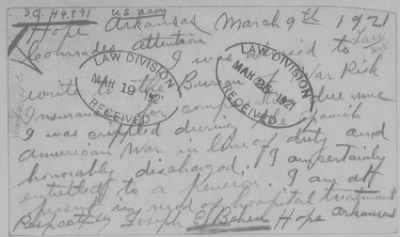 I.G. 44.891 U.S. navy
Hope Arkansas March 9th 1921
Comrades attention I was advised to
write to the Bureau of War Risk
Insurance for compensation due me
I was crippled during the Spanish
American War in line of duty and
honorably discharged. I am certainly
entitled to a Pension. I am at
present in need of hospital treatment
Respectfully Joseph E. Hope Arkansas
LAW DIVISION
MAR 19 1921
RECEIVED
LAW DIVISION
MAR 1921
RECEIVED